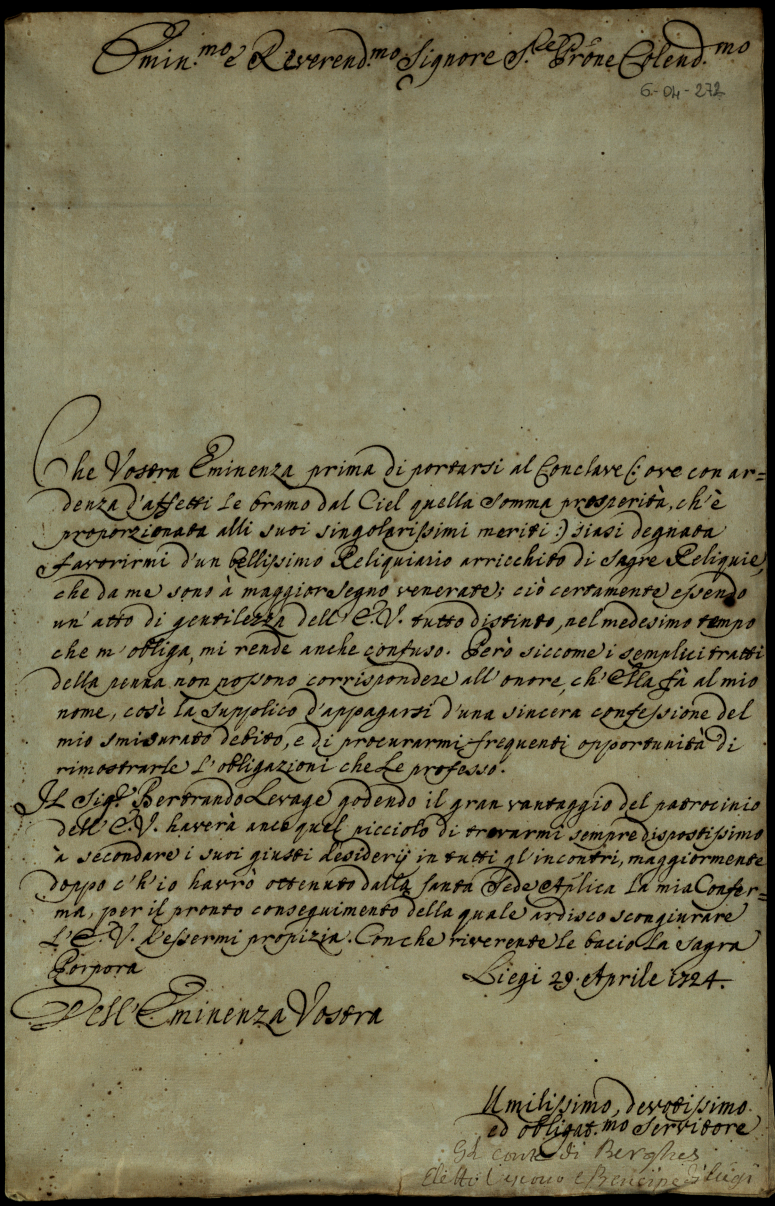 Emin.mo e Reverend.mo Signore S.re Prône Colend.mo
6-04-272
Che Vostra Eminenza prima di portarsi al Conclave (: ove con ar=
denza d'affetti Le bramo dal Ciel quella somma prosperità, ch'è
proporzionata alli suoi singolarissimi meriti :) siasi degnata
favorirmi d'un bellissimo Reliquiario arricchito di Sagre Reliquie,
che da me sono à maggior segno venerate; ciò certamente essendo
un' atto di gentilezza dell' E.V. tutto distinto, nel medesimo tempo
che m' obliga, mi rende anche confuso. Però siccome i semplici tratti
della penna non possono corrispondere all' onore, ch' Ella fà al mio
nome, così la supplico d'appagarsi d'una sincera confessione del
mio smisurato debito, e di procurarmi frequenti opportunità di
rimostrarle l'obligazioni che Le professo.
Il Sig.r Bertrando Levage godendo il gran vantaggio del patrocinio
dell' E.V. haverà anco quel picciolo di trovarmi sempre dispostissimo
à secondare i suoi giusti desiderij in tutti gl' incontri, maggiormente
doppo c'h'io havrò ottenuto dalla Santa Sede Aplica la mia Confer=
ma, per il pronto conseguimento della quale ardisco scongiurare
L'E.V. d'essermi propizia. Con che riverente le bacio la Sagra
Porpora
Liegi 29. Aprile 1724.
Dell' Eminenza Vostra
Umilissimo, devotissimo
ed obligat.mo Servitore
conte di Berghes
Eletto Vescovo e Prencipe di Liegi